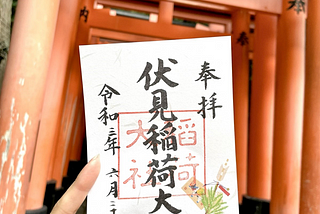 奉拝
伏見稲荷大
令和三年六月二
稲荷
大社